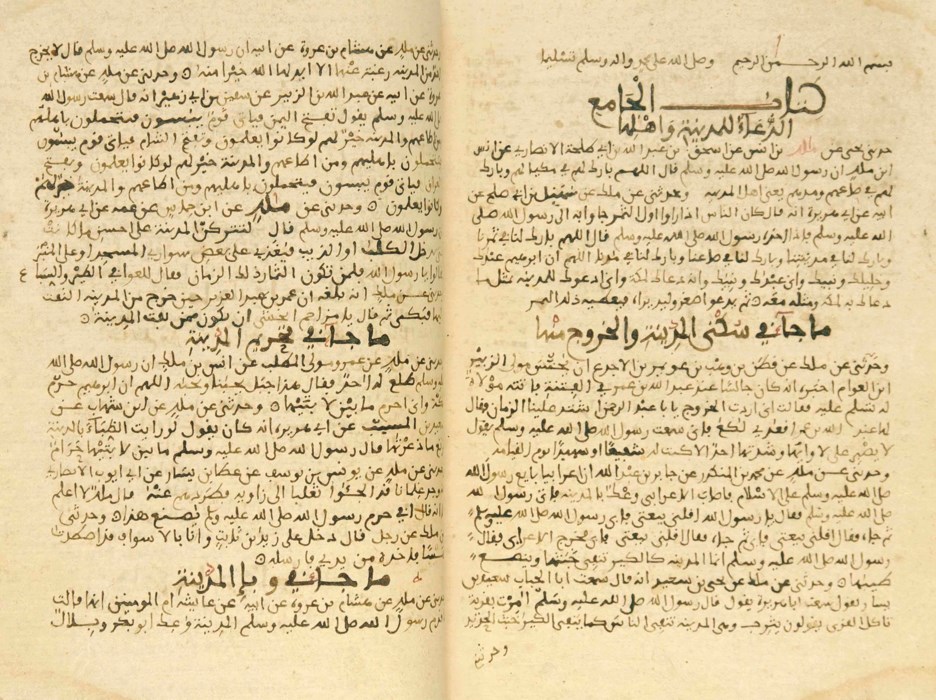 بسم الله الرحمن الرحيم وصل الله على محمد واله وسلم تسليما
كتاب الجامع
الدعاء للمدينة واهلها
حدثني يحيى عن ملك بن انس عن اسحق بن عبد الله بن ابي طلحة الانصاري عن انس
ابن ملك ان رسول الله صلى الله عليه وسلم قال اللهم بارك لهم في مكيالهم وبارك
لهم في صاعهم ومدهم يعني اهل المدينة وحدثني عن ملك عن سهيل بن ابي صلح عن
ابيه عن ابي هريرة انه قال كان الناس اذا راوا اول الثمر جاوا به الى رسول الله صلى
الله عليه وسلم فاذا اخذه رسول الله صلى الله عليه وسلم قال اللهم بارك لنا في ثمرنا
وبارك لنا في مدينتنا وبارك لنا في صاعنا وبارك لنا في مدنا اللهم ان ابرهيم عبدك
وخليلك ونبيك واني عبدك ونبيك وانه دعاك لمكة واني ادعوك للمدينة بمثل ما
دعاك به لمكة ومثله معه ثم يدعوا اصغر وليد يراه فيعطيه ذلك الثمر
ما جاء في سكنى المدينة والخروج منها
وحدثني عن ملك عن قطن بن وهب بن عويمر بن الاجدع ان يحنس مولى الزبير
ابن العوام اخبره انه كان جالسا عند عبد الله بن عمر في الفتنة فاتته مولاة
له تسلم عليه فقالت اني اردت الخروج يا ابا عبد الرحمن اشتد علينا الزمان فقال
لها عبد الله بن عمر اقعدي لكع فاني سمعت رسول الله صلى الله عليه وسلم يقول
لا يصبر على لاوائها وشدتها احد الا كنت له شفيعا او شهيدا يوم القيامة
وحدثني عن ملك عن محمد بن المنكدر عن جابر بن عبد الله ان اعرابيا بايع رسول الله
صلى الله عليه وسلم على الاسلام فاصاب الاعرابي وعك بالمدينة فاتى رسول الله صلى
الله عليه وسلم فقال يا رسول الله اقلني بيعتي فابى رسول الله صلى الله عليه وسلم
ثم جاءه فقال اقلني بيعتي فابى ثم جاءه فقال اقلني بيعتي فابى فخرج الاعرابي فقال
رسول الله صلى الله عليه وسلم انما المدينة كالكير تنفي خبثها وينصع
طيبها وحدثني عن ملك عن يحيى بن سعيد انه قال سمعت ابا الحباب سعيد بن
يسار يقول سمعت ابا هريرة يقول قال رسول الله صلى الله عليه وسلم امرت بقرية
تاكل القرى يقولون يثرب وهي المدينة تنفي الناس كما ينفي الكير خبث الحديد
وحدثني
وحدثني عن ملك عن هشام بن عروة عن ابيه ان رسول الله صلى الله عليه وسلم قال لا يخرج
احد من المدينة رغبة عنها الا ابدلها الله خيرا منه وحدثني عن ملك عن هشام بن
عروة عن ابيه عن عبد الله بن الزبير عن سفين بن ابي زهير انه قال سمعت رسول الله
صلى الله عليه وسلم يقول تفتح اليمن فياتي قوم يبسون فيتحملون باهلهم
ومن اطاعهم والمدينة خير لهم لو كانوا يعلمون وتفتح الشام فياتي قوم يبسون
فيتحملون باهليهم ومن اطاعهم والمدينة خير لهم لو كانوا يعلمون وتفتح
العراق فياتي قوم يبسون فيتحملون باهليهم ومن اطاعهم والمدينة خير لهم
لو كانوا يعلمون وحدثني عن ملك عن ابن حماس عن عمه عن ابي هريرة
ان رسول الله صلى الله عليه وسلم قال لتتركن المدينة على احسن ما كانت
حتى يدخل الكلب او الذيب فيغذي على بعض سواري المسجد او على المنبر
فقالوا يا رسول الله فلمن تكون الثمار ذلك الزمان فقال للعوافي الطير والسباع
وحدثني عن ملك انه بلغه ان عمر بن عبد العزيز حين خرج من المدينة التفت
اليها فبكى ثم قال يا مزاحم اتخشى ان نكون ممن نفت المدينة
ما جاء في تحريم المدينة
وحدثني عن ملك عن عمرو مولى المطلب عن انس بن ملك ان رسول الله صلى الله
عليه وسلم طلع له احد فقال هذا جبل يحبنا ونحبه اللهم ان ابرهيم حرم
مكة واني احرم ما بين لابتيها وحدثني عن ملك عن ابن شهاب عن
سعيد بن المسيب عن ابي هريرة انه كان يقول لو رايت الظباء بالمدينة
ترتع ما ذعرتها قال رسول الله صلى الله عليه وسلم ما بين لابتيها حرام
وحدثني عن ملك عن يونس بن يوسف عن عطاء بن يسار عن ابي ايوب الانصاري
انه وجد غلمانا قد الجئوا ثعلبا الى زاوية فطردهم عنه قال ملك لا اعلم
الا انه قال افي حرم رسول الله صلى الله عليه وسلم يصنع هذا وحدثني
عن ملك عن رجل قال دخل علي زيد بن ثابت وانا بالاسواف قد اصطدت
نهسا فاخذه من يدي فارسله
ما جاء في وباء المدينة
وحدثني عن ملك عن هشام بن عروة عن ابيه عن عائشة ام المومنين انها قالت
لما قدم رسول الله صلى الله عليه وسلم المدينة وعك ابو بكر وبلال